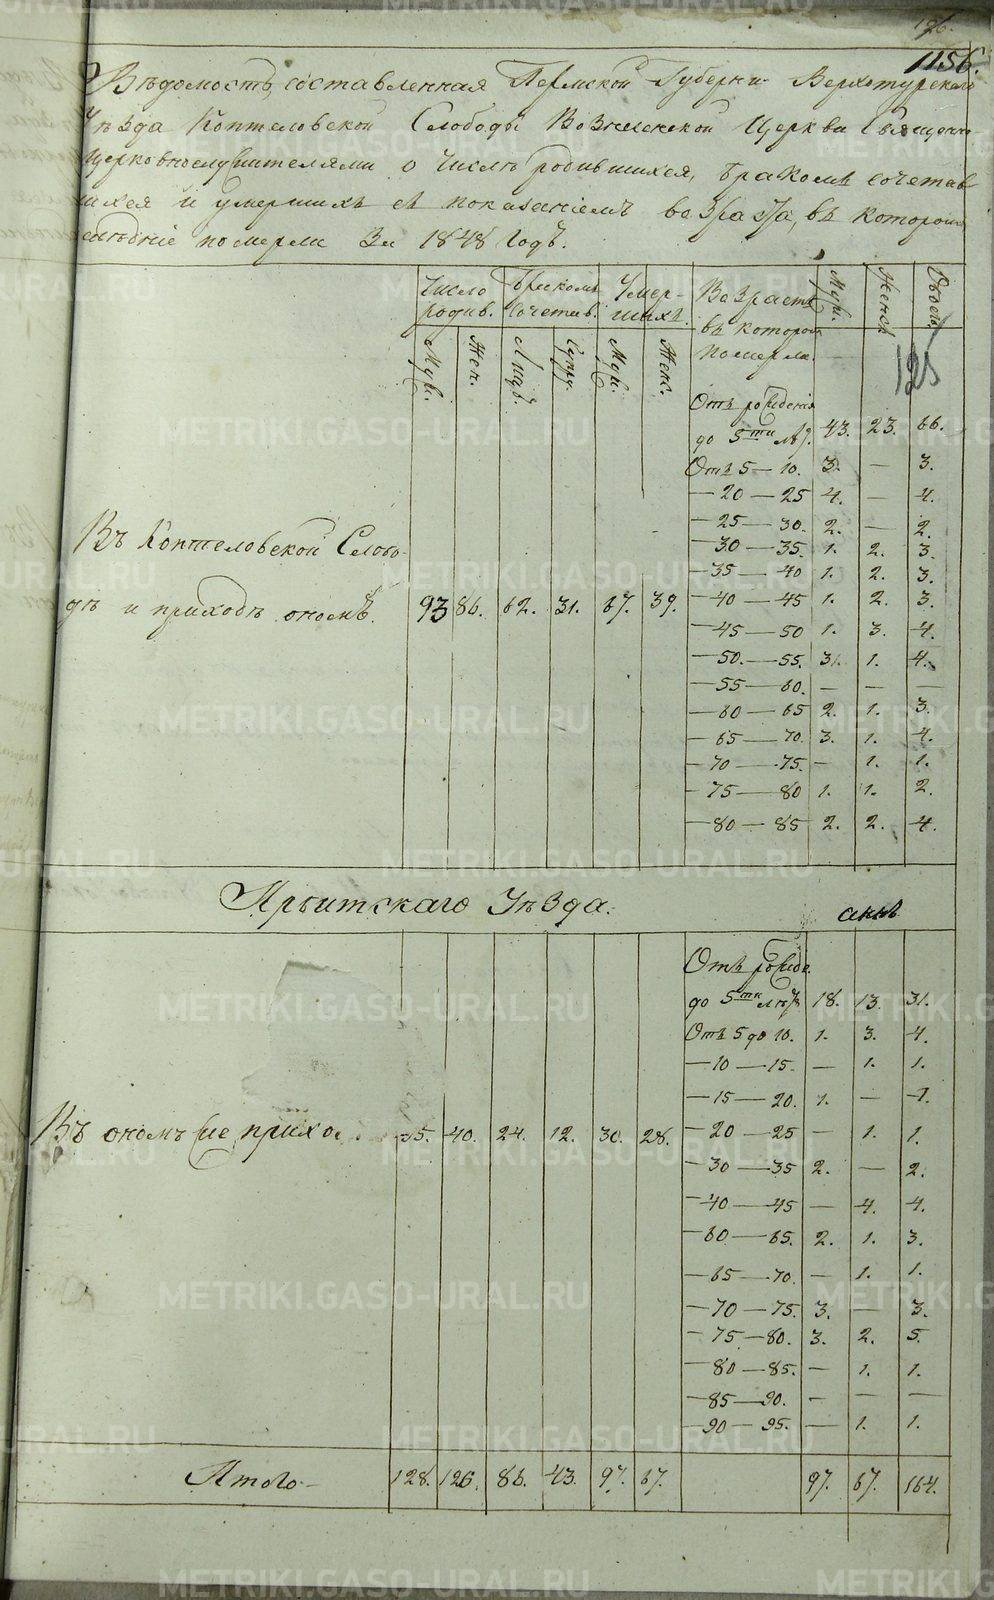 126.
1156.
Вѣдомость, составленная Пермской Губернiи Верхотурскаго
Уѣзда Коптеловской Слободы Вознесенской Церкви Священно
церковнослужителями о числѣ родившихся, бракомъ сочетав
шихся и умершихъ съ показанiемъ возраста, въ которомъ
послѣднiе померли За 1848 Годъ.
Число родив. Бракомъ сочетав. Умер- шихъ. Возрастъ въ которомъ померли. Муж. Женск. Обоего
Муж. Жен. Лицъ. Супру. Муж. Женс.
125
Отъ рожденiя
до 5ти лѣт. 43. 23. 66.
Отъ 5 — 10. 3. — 3.
— 20 — 25 4. — 4.
— 25 — 30. 2. — 2.
— 30 — 35. 1. 2. 3.
— 35 — 40 1. 2. 3.
Въ Коптеловской Слобо-
дѣ и приходѣ ономъ. 93 86. 62. 31. 67. 39. — 40 — 45 1. 2. 3.
— 45 — 50 1. 3. 4.
— 50. — 55. 3. 1. 4.
— 55 — 60. — — —
— 60 — 65 2. 1. 3.
— 65 — 70. 3. 1. 4.
— 70 — 75. — 1. 1.
— 75 — 80 1. 1. 2.
— 80 — 85 2. 2. 4.
Ирбитскаго Уѣзда.
Отъ рожде.
до 5ти лѣт. 18. 13. 31.
Отъ 5 до 10. 1. 3. 4.
— 10 — 15. — 1. 1.
— 15 — 20. 1. — 1.
Въ ономъ же прихо 35. 40. 24. 12. 30. 28. — 20 — 25 — 1. 1.
— 30 — 35 2. — 2.
— 40 — 45 — 4. 4.
— 60 — 65. 2. 1. 3.
— 65 — 70. — 1. 1.
— 70 — 75. 3. — 3.
— 75 — 80. 3. 2. 5.
— 80 — 85. — 1. 1.
— 85 — 90. — — —
— 90 — 95. — 1. 1.
Итого — 128. 126. 86. 43. 97. 67. 97. 67. 164.
METRIKI.GASO-URAL.RU